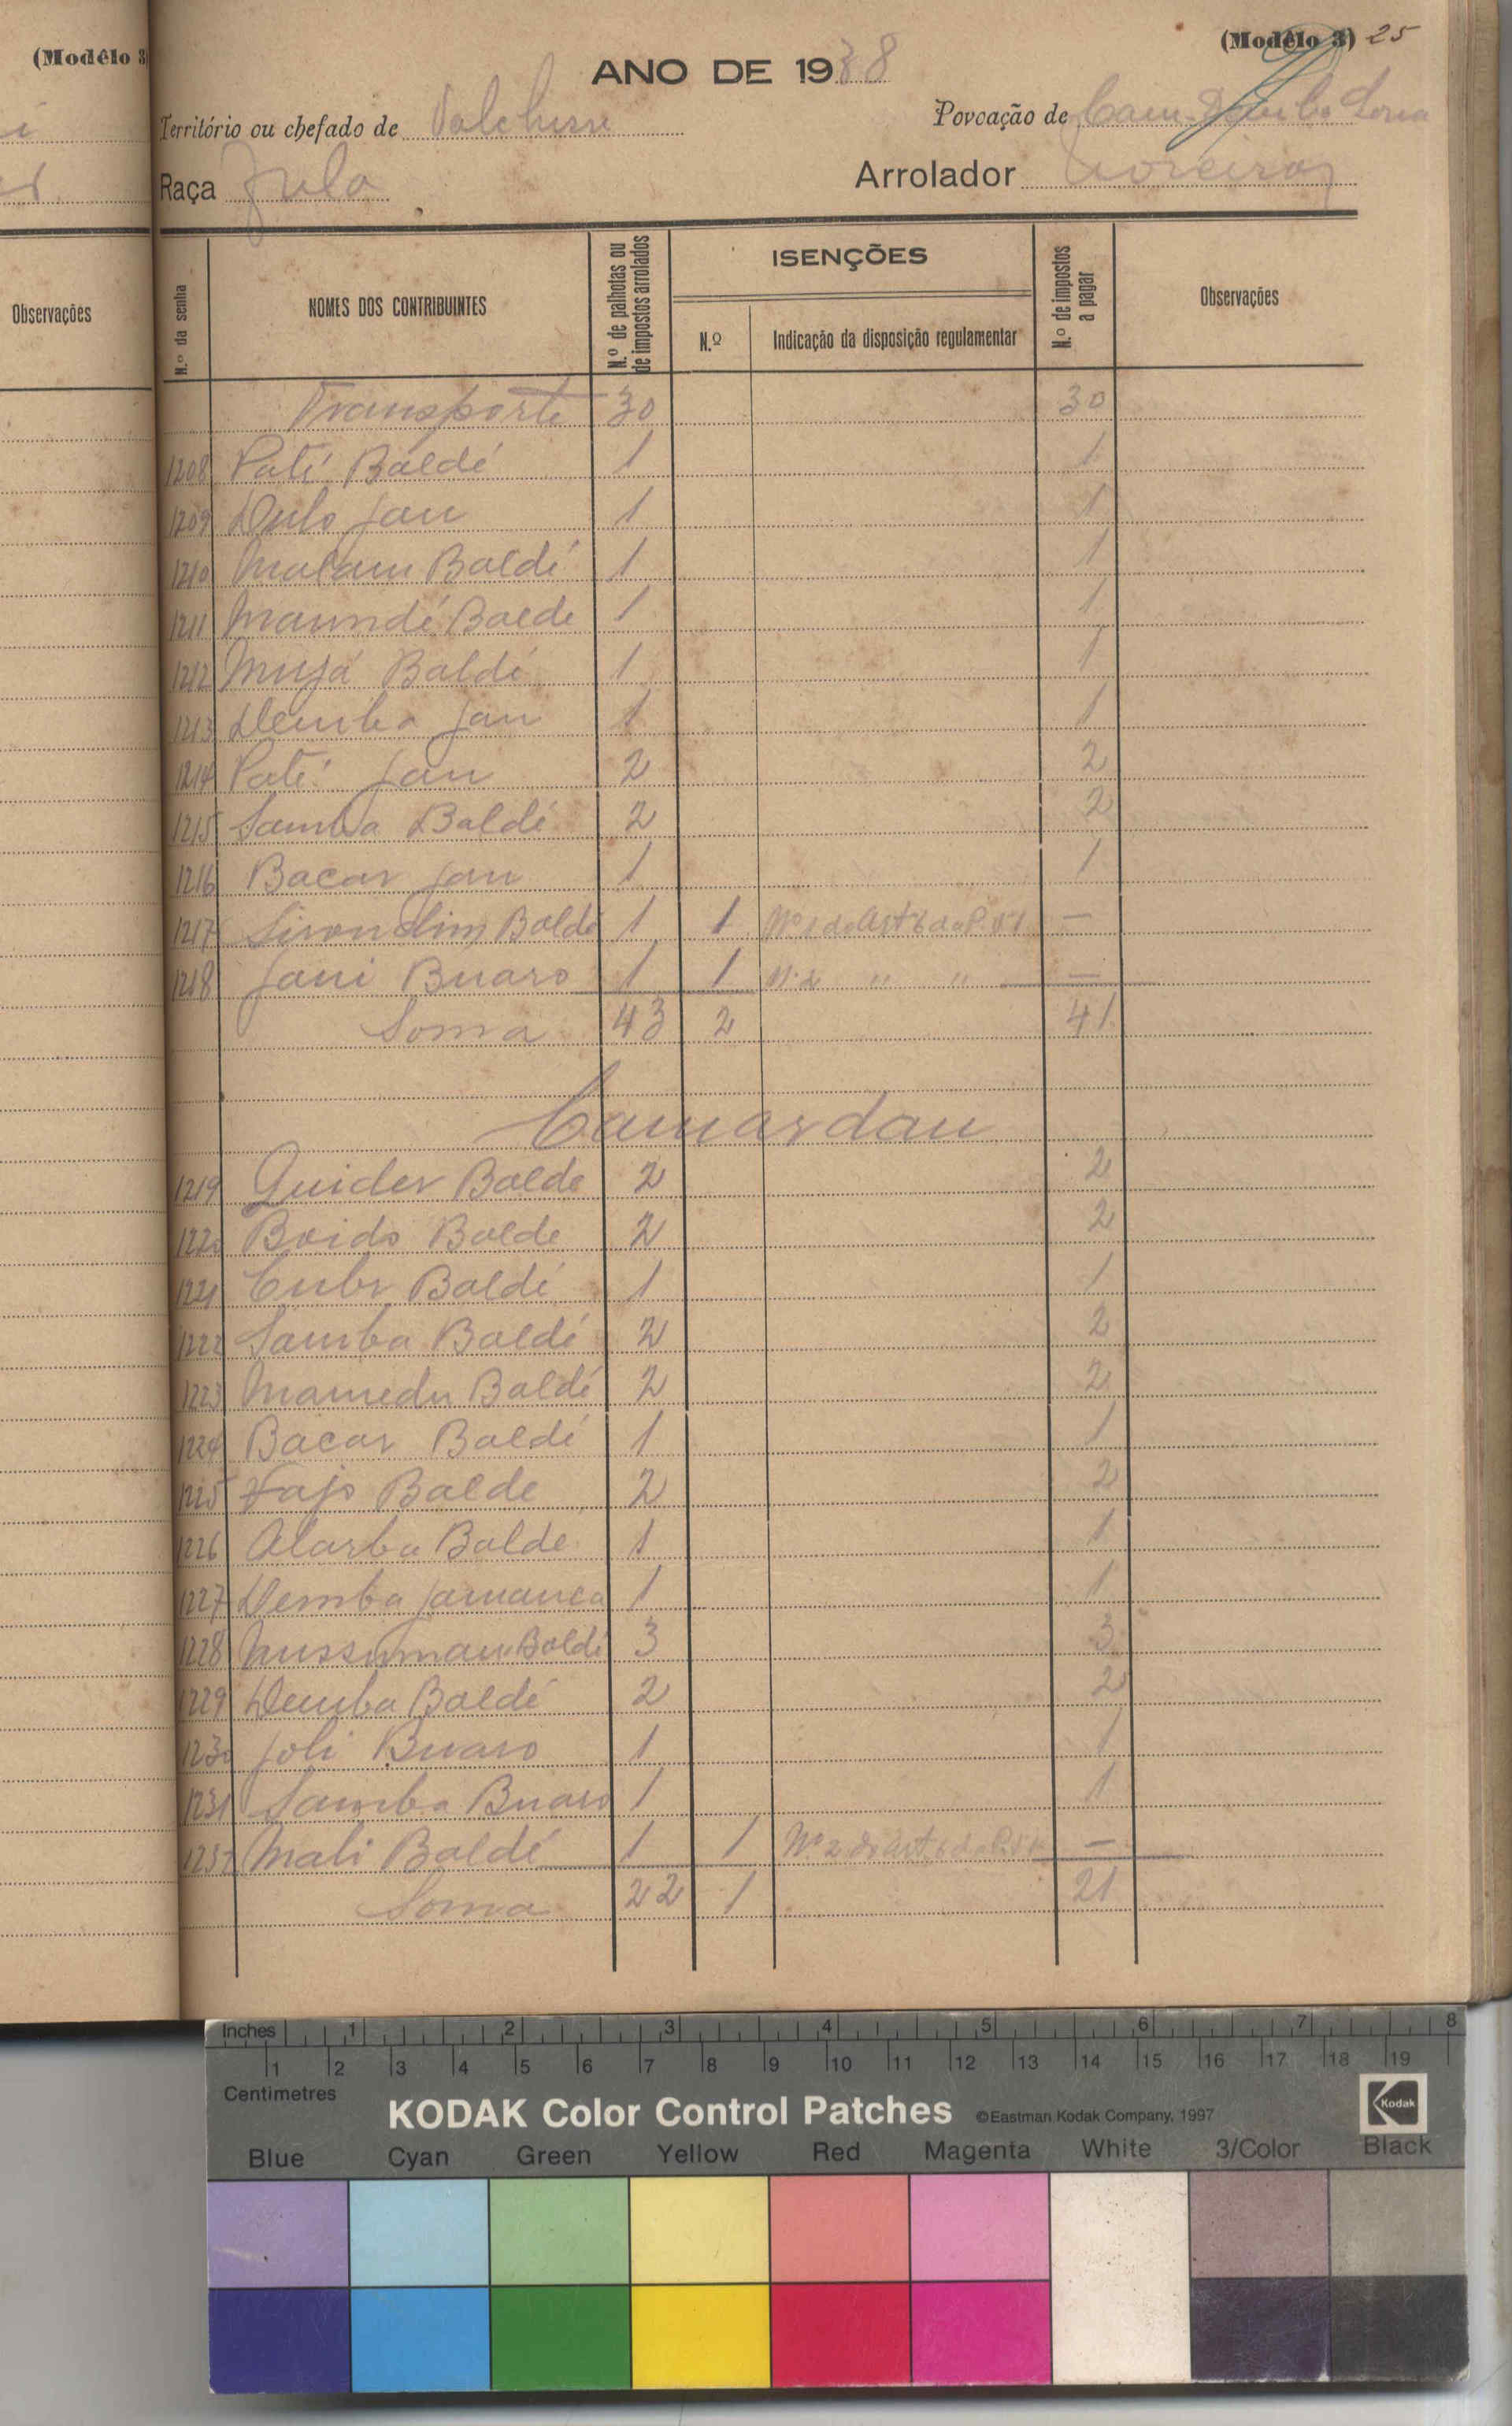 (Modêlo 3
Observações
(Modêlo 3) 25
ANO DE 1938
Território ou chefado de
Povoação de
Raça Fula
Arrolador Moreira
N.º da senha
NOMES DOS CONTRIBUINTES
N.º de palhotas ou de impostos arrolados
ISENÇÕES
N.º
Indicação da disposição regulamentar
N.º de impostos a pagar
Observações
Transporte 30 30
1208 Paté Baldé 1 1
1209 Dulo Jau 1 1
1210 Malam Baldé 1 1
1211 Maundé Balde 1 1
1212 Mujá Baldé 1 1
1213 Demba Jau 1 1
1214 Paté Jau 2 2
1215 Samba Baldé 2 2
1216 Bacar Jau 1 1
1217 Baldé 1 1 Nº 1 do Artº 6 do —
1218 Jani Buaro 1 1 Nº 2 " " —
Soma 43 2 41
Camardau
1219 Guider Balde 2 2
1220 Boido Balde 2 2
1221 Baldé 1 1
1222 Samba Baldé 2 2
1223 Mamedu Baldé 2 2
1224 Bacar Baldé 1 1
1225 Balde 2 2
1226 Alarba Balde 1 1
1227 Demba Jamanca 1 1
1228 Mussumau Baldé 3 3
1229 Demba Baldé 2 2
1230 Joli Buaro 1 1
1231 Samba Buaro 1 1
1232 Mali Baldé 1 1 Nº 2 do Artº 6 do —
Soma 22 1 21
Inches 1 2 3 4 5 6 7 8
1 2 3 4 5 6 7 8 9 10 11 12 13 14 15 16 17 18 19
Centimetres
KODAK Color Control Patches ©Eastman Kodak Company, 1997 Kodak
Blue Cyan Green Yellow Red Magenta White 3/Color Black